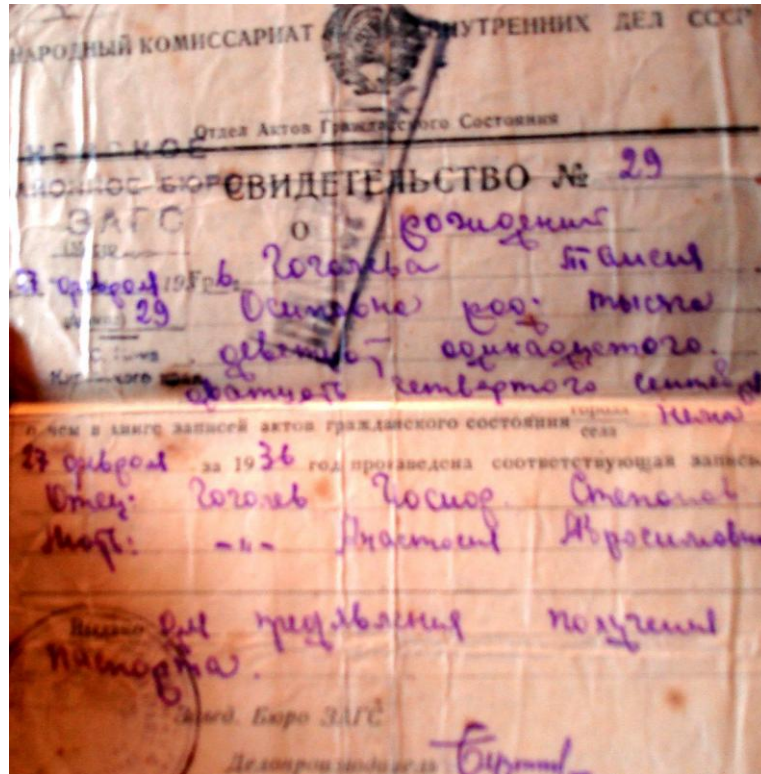 НАРОДНЫЙ КОМИССАРИАТ ВНУТРЕННИХ ДЕЛ СССР
Отдел Актов Гражданского Состояния
НЕМСКОЕ
РАЙОННОЕ БЮРО
ЗАГС
СВИДЕТЕЛЬСТВО № 29
О рождении
27 февраля 1936 г. Гоголева Таисия
29 Осиповна род. тысяча
девятьс. одинадцатого.
двадцать четвертого сентября
о чем в книге записей актов гражданского состояния города села Нема
27 февраля за 1936 год произведена соответствующая запись
Отец: Гоголев Степанов
Мать: -"- Анастасия
Выдано для предъявления получения
паспорта.
Завед. Бюро ЗАГС
Делопроизводитель